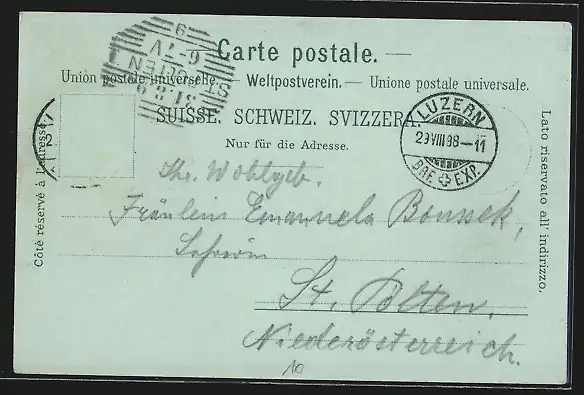 Carte postale. —
Union postale universelle. — Weltpostverein. — Unione postale universale.
SUISSE. SCHWEIZ. SVIZZERA.
Nur für die Adresse.
Côté réservé à l'adresse.
Lato riservato all' indirizzo.
LUZERN
29.VIII.98–11
BRF. EXP.
ST. PÖLTEN
31.8.9
6–7V
Ihr. Wohlgeb.
Fräulein Emanuela Boussek,
St. Pölten.
Niederösterreich.
10